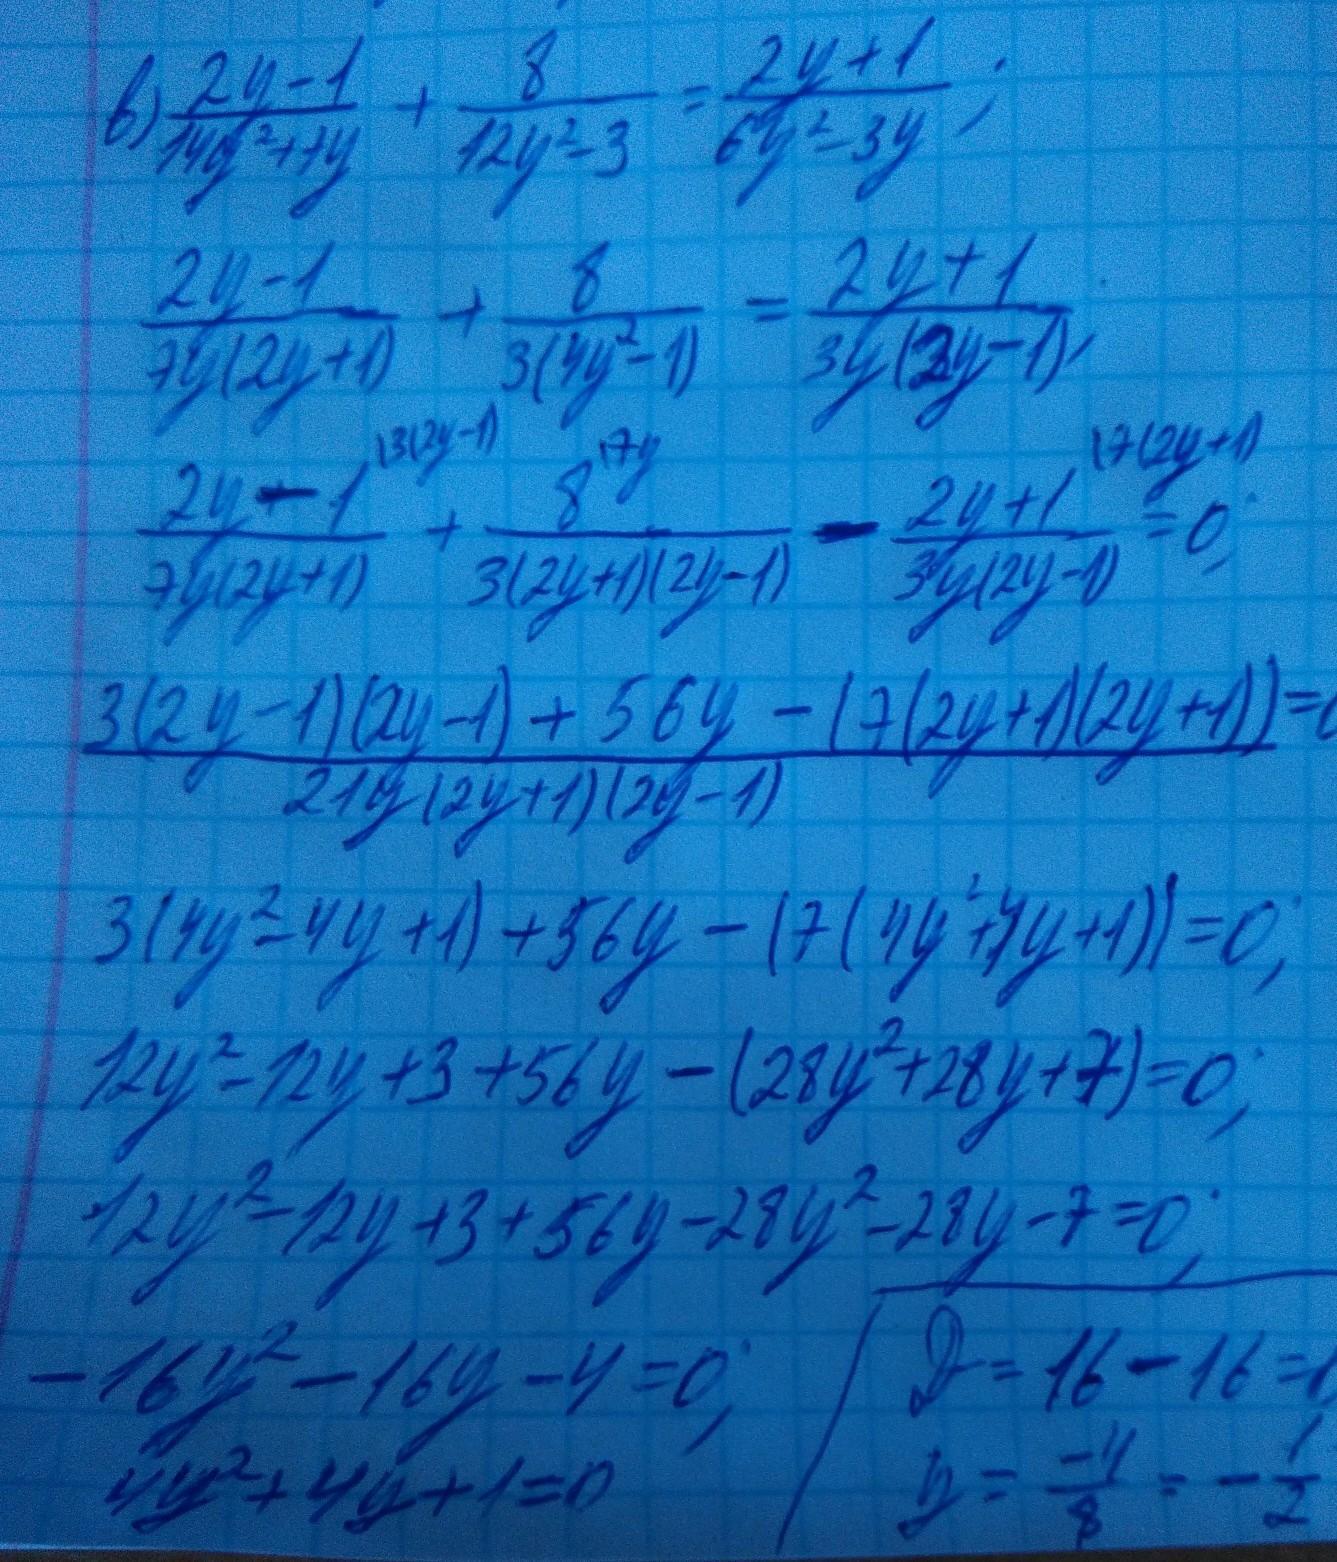 в) (2y-1)/(14y²+7y) + 8/(12y²-3) = (2y+1)/(6y²-3y);
(2y-1)/(7y(2y+1)) + 8/(3(4y²-1)) = (2y+1)/(3y(2y-1));
(2y-1)/(7y(2y+1)) \3(2y-1) + 8/(3(2y+1)(2y-1)) \7y - (2y+1)/(3y(2y-1)) \7(2y+1) = 0;
(3(2y-1)(2y-1) + 56y - (7(2y+1)(2y+1)))/(21y(2y+1)(2y-1)) = 0
3(4y²-4y+1)+56y-(7(4y²+4y+1))=0;
12y²-12y+3+56y-(28y²+28y+7)=0;
12y²-12y+3+56y-28y²-28y-7=0;
-16y²-16y-4=0;
4y²+4y+1=0
D=16-16=0
y = -4/8 = -1/2